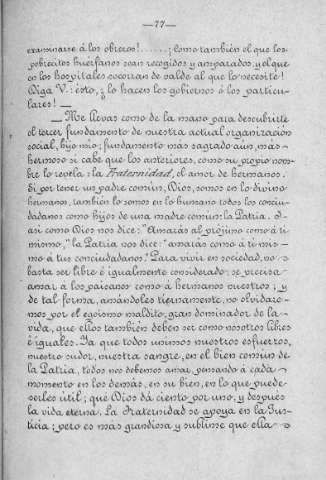 —77—
examinarse á los obreros!.....; ¡como también el que los
pobrecitos huérfanos sean recogidos y amparados, y el que
en los hospitales socorran de valde al que lo necesite!
Diga V.: ésto, ¿lo hacen los gobiernos ó los particu-
lares! —
— Me llevas como de la mano para descubrirte
el tercer fundamento de nuestra actual organización
social, hijo mio; fundamento más sagrado aún, más
hermoso si cabe que los anteriores, como su propio nom-
bre lo revela: la Fraternidad, el amor de hermanos.
Si por tener un padre común, Dios, somos en lo divino
hermanos, también lo somos en lo humano todos los conciu-
dadanos como hijos de una madre común: la Patria. Y
así como Dios nos dice: "Amarás al prójimo como á ti
mismo," la Patria nos dice: "amarás como á ti mis-
mo á tus conciudadanos." Para vivir en sociedad, no
basta ser libre é igualmente considerado: se precisa
amar á los paisanos como á hermanos nuestros; y
de tal forma, amándoles tiernamente, no olvidare-
mos por el egoismo maldito, gran dominador de la
vida, que ellos también deben ser como nosotros libres
é iguales. Ya que todos unimos nuestros esfuerzos,
nuestro sudor, nuestra sangre, en el bien común de
la Patria, todos nos debemos amar, pensando á cada
momento en los demás, en su bien, en lo que puede
serles útil; que Dios dá ciento por uno, y después
la vida eterna. La Fraternidad se apoya en la Jus-
ticia; pero es más grandiosa y sublime que ella